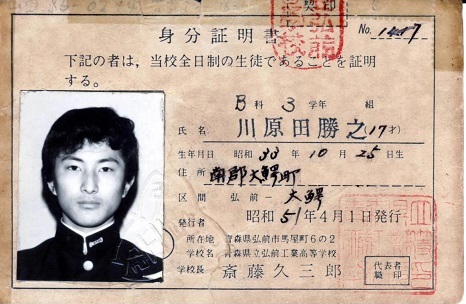 No. 1447
身分証明書
下記の者は，当校全日制の生徒であることを証明
する。
B科 3学年 組
氏名 川原田勝之(17才)
生年月日 昭和 33年 10月 25日生
住所 南郡大鰐町
区間 弘前 － 大鰐
発行者 昭和51年4月1日発行
所在地 青森県弘前市馬屋町6の2
学校名 青森県立弘前工業高等学校
学校長 斎藤久三郎
代表者
職印